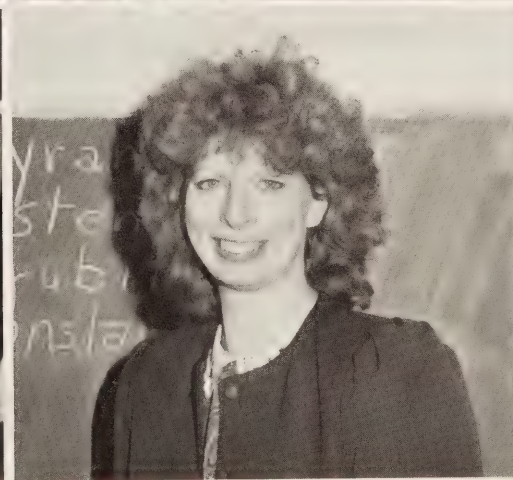 yra
ste
rubi
onsta